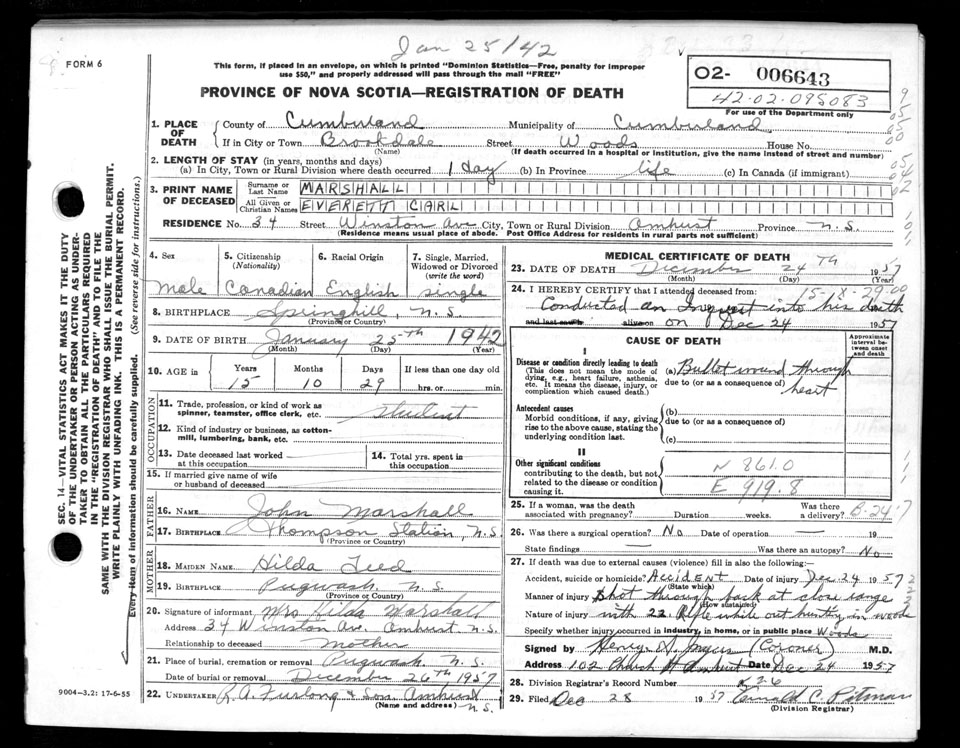 Jan 25/42
FORM 6
This form, if placed in an envelope, on which is printed "Dominion Statistics—Free, penalty for improper
use $50," and properly addressed will pass through the mail "FREE"
02- 006643
42.02.095083
For use of the Department only
PROVINCE OF NOVA SCOTIA—REGISTRATION OF DEATH
1. PLACE OF DEATH
County of Cumberland Municipality of Cumberland
If in City or Town Brookdale Street Woods House No.
(Name) (If death occurred in a hospital or institution, give the name instead of street and number)
2. LENGTH OF STAY (in years, months and days)
(a) In City, Town or Rural Division where death occurred 1 day (b) In Province life (c) In Canada (if immigrant)
3. PRINT NAME OF DECEASED
Surname or Last Name MARSHALL
All Given or Christian Names EVERETT CARL
RESIDENCE No. 34 Street Winston Ave City, Town or Rural Division Amherst Province N.S.
(Residence means usual place of abode. Post Office Address for residents in rural parts not sufficient)
4. Sex
male
5. Citizenship (Nationality)
Canadian
6. Racial Origin
English
7. Single, Married, Widowed or Divorced (write the word)
single
8. BIRTHPLACE Springhill, N.S.
(Province or Country)
9. DATE OF BIRTH January 25th 1942
(Month) (Day) (Year)
10. AGE
Years Months Days If less than one day old
15 10 29 hrs. or min.
OCCUPATION
11. Trade, profession, or kind of work as spinner, teamster, office clerk, etc. student
12. Kind of industry or business, as cotton-mill, lumbering, bank, etc.
13. Date deceased last worked at this occupation
14. Total yrs. spent in this occupation
15. If married give name of wife or husband of deceased
FATHER
16. NAME John Marshall
17. BIRTHPLACE Thompson Station, N.S.
(Province or Country)
MOTHER
18. MAIDEN NAME Hilda Teed
19. BIRTHPLACE Pugwash N.S.
(Province or Country)
20. Signature of informant Mrs Hilda Marshall
Address 34 Winston Ave. Amherst, N.S.
Relationship to deceased mother
21. Place of burial, cremation or removal Pugwash, N.S.
Date of burial or removal December 26th 1957
22. UNDERTAKER R.A. Furlong & Son Amherst
(Name and address) N.S.
MEDICAL CERTIFICATE OF DEATH
23. DATE OF DEATH December 24th 1957
(Month) (Day)
24. I HEREBY CERTIFY that I attended deceased from:
15-X-29.00
Conducted an Inquest into his death
and last saw alive on on Dec 24 1957
CAUSE OF DEATH
Approximate interval between onset and death
I
Disease or condition directly leading to death
(This does not mean the mode of dying, e.g., heart failure, asthenia, etc. It means the disease, injury, or complication which caused death.)
(a) Bullet wound through
due to (or as a consequence of) heart
Antecedent causes
Morbid conditions, if any, giving rise to the above cause, stating the underlying condition last.
(b)
due to (or as a consequence of)
(c)
II
Other significant conditions contributing to the death, but not related to the disease or condition causing it.
N 861.0
E 919.8
25. If a woman, was the death associated with pregnancy? Duration weeks. Was there a delivery? B-24-7
26. Was there a surgical operation? No Date of operation — 19
State findings — Was there an autopsy? No
27. If death was due to external causes (violence) fill in also the following:
Accident, suicide or homicide? Accident Date of injury Dec 24 1957
(State which)
Manner of injury Shot through back at close range
(How sustained)
Nature of injury with 22 Rifle while out hunting in woods
Specify whether injury occurred in industry, in home, or in public place Woods
Signed by (Coroner) M.D.
Address 102 Church St Amherst Date Dec 24 1957
28. Division Registrar's Record Number 226
29. Filed Dec 28 1957 C. Pitman
(Division Registrar)
SEC. 14—VITAL STATISTICS ACT MAKES IT THE DUTY
OF THE UNDERTAKER OR PERSON ACTING AS UNDER-
TAKER TO OBTAIN ALL THE PARTICULARS REQUIRED
IN THE "REGISTRATION OF DEATH" AND TO FILE THE
SAME WITH THE DIVISION REGISTRAR WHO SHALL ISSUE THE BURIAL PERMIT.
WRITE PLAINLY WITH UNFADING INK. THIS IS A PERMANENT RECORD.
Every item of information should be carefully supplied. (See reverse side for instructions.)
9004—3.2: 17-6-55